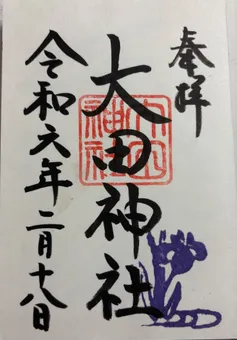 奉拝
大田神社
大田
神社
令和六年二月十八日